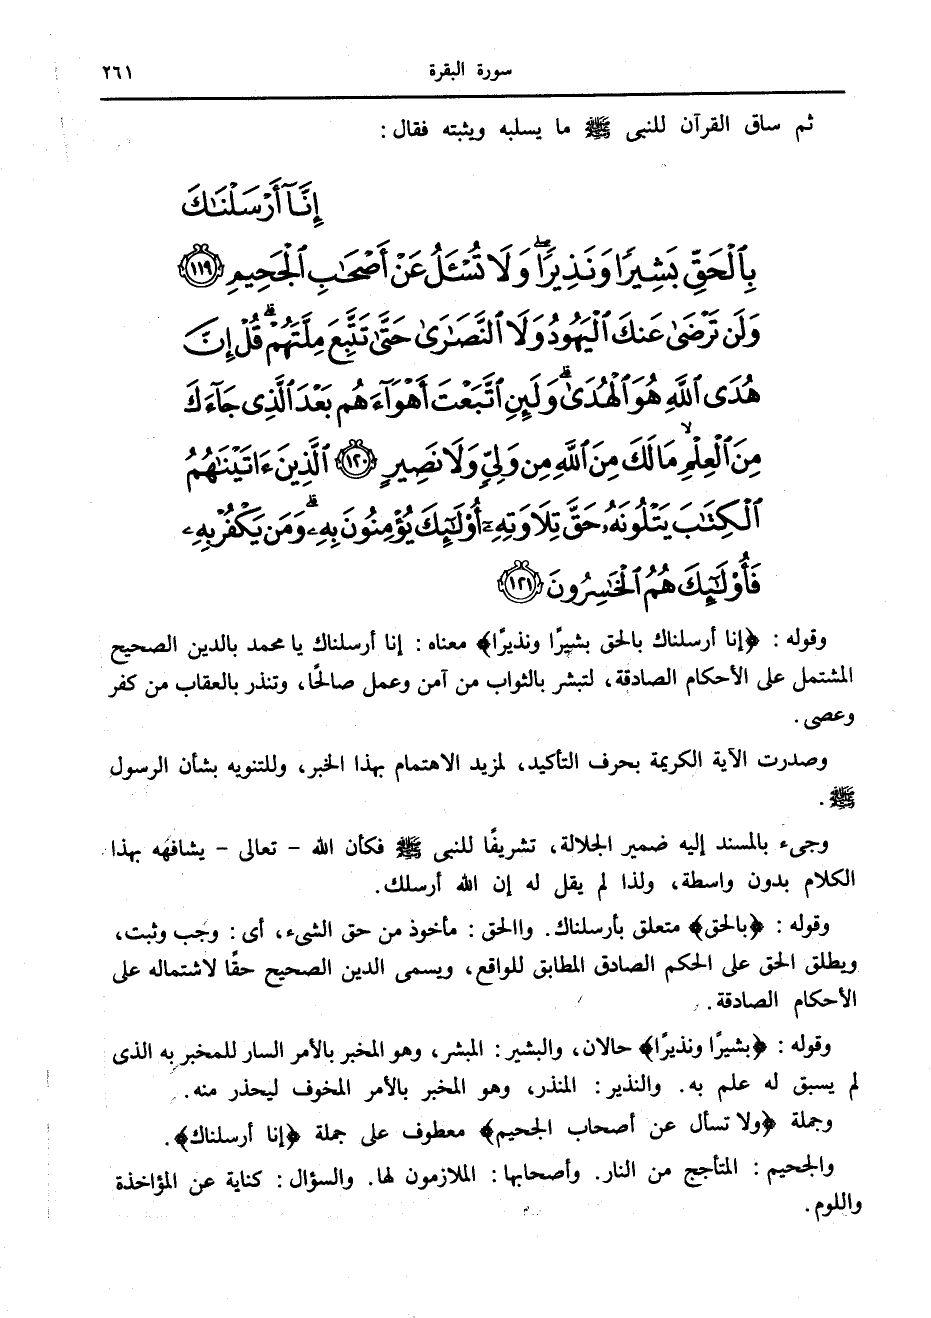 سورة البقرة ٢٦١
ثم ساق القرآن للنبى ﷺ ما يسليه ويثبته فقال :
إِنَّآ أَرْسَلْنَٰكَ
بِٱلْحَقِّ بَشِيرًا وَنَذِيرًا ۖ وَلَا تُسْـَٔلُ عَنْ أَصْحَٰبِ ٱلْجَحِيمِ ١١٩
وَلَن تَرْضَىٰ عَنكَ ٱلْيَهُودُ وَلَا ٱلنَّصَٰرَىٰ حَتَّىٰ تَتَّبِعَ مِلَّتَهُمْ ۗ قُلْ إِنَّ
هُدَى ٱللَّهِ هُوَ ٱلْهُدَىٰ ۗ وَلَئِنِ ٱتَّبَعْتَ أَهْوَآءَهُم بَعْدَ ٱلَّذِى جَآءَكَ
مِنَ ٱلْعِلْمِ ۙ مَا لَكَ مِنَ ٱللَّهِ مِن وَلِىٍّ وَلَا نَصِيرٍ ١٢٠ ٱلَّذِينَ ءَاتَيْنَٰهُمُ
ٱلْكِتَٰبَ يَتْلُونَهُۥ حَقَّ تِلَاوَتِهِۦٓ أُو۟لَٰٓئِكَ يُؤْمِنُونَ بِهِۦ ۗ وَمَن يَكْفُرْ بِهِۦ
فَأُو۟لَٰٓئِكَ هُمُ ٱلْخَٰسِرُونَ ١٢١
وقوله : ﴿إنا أرسلناك بالحق بشيرًا ونذيرًا﴾ معناه : إنا أرسلناك يا محمد بالدين الصحيح
المشتمل على الأحكام الصادقة، لتبشر بالثواب من آمن وعمل صالحًا، وتنذر بالعقاب من كفر
وعصى.
وصدرت الآية الكريمة بحرف التأكيد، لمزيد الاهتمام بهذا الخبر، وللتنويه بشأن الرسول
ﷺ.
وجىء بالمسند إليه ضمير الجلالة، تشريفًا للنبى ﷺ فكأن الله - تعالى - يشافهه بهذا
الكلام بدون واسطة، ولذا لم يقل له إن الله أرسلك.
وقوله : ﴿بالحق﴾ متعلق بأرسلناك. واالحق : مأخوذ من حق الشىء، أى : وجب وثبت،
ويطلق الحق على الحكم الصادق المطابق للواقع، ويسمى الدين الصحيح حقًا لاشتماله على
الأحكام الصادقة.
وقوله : ﴿بشيرًا ونذيرًا﴾ حالان، والبشير : المبشر، وهو المخبر بالأمر السار للمخبر به الذى
لم يسبق له علم به. والنذير : المنذر، وهو المخبر بالأمر المخوف ليحذر منه.
وجملة ﴿ولا تسأل عن أصحاب الجحيم﴾ معطوف على جملة ﴿إنا أرسلناك﴾.
والجحيم : المتأجج من النار. وأصحابها : الملازمون لها. والسؤال : كناية عن المؤاخذة
واللوم.